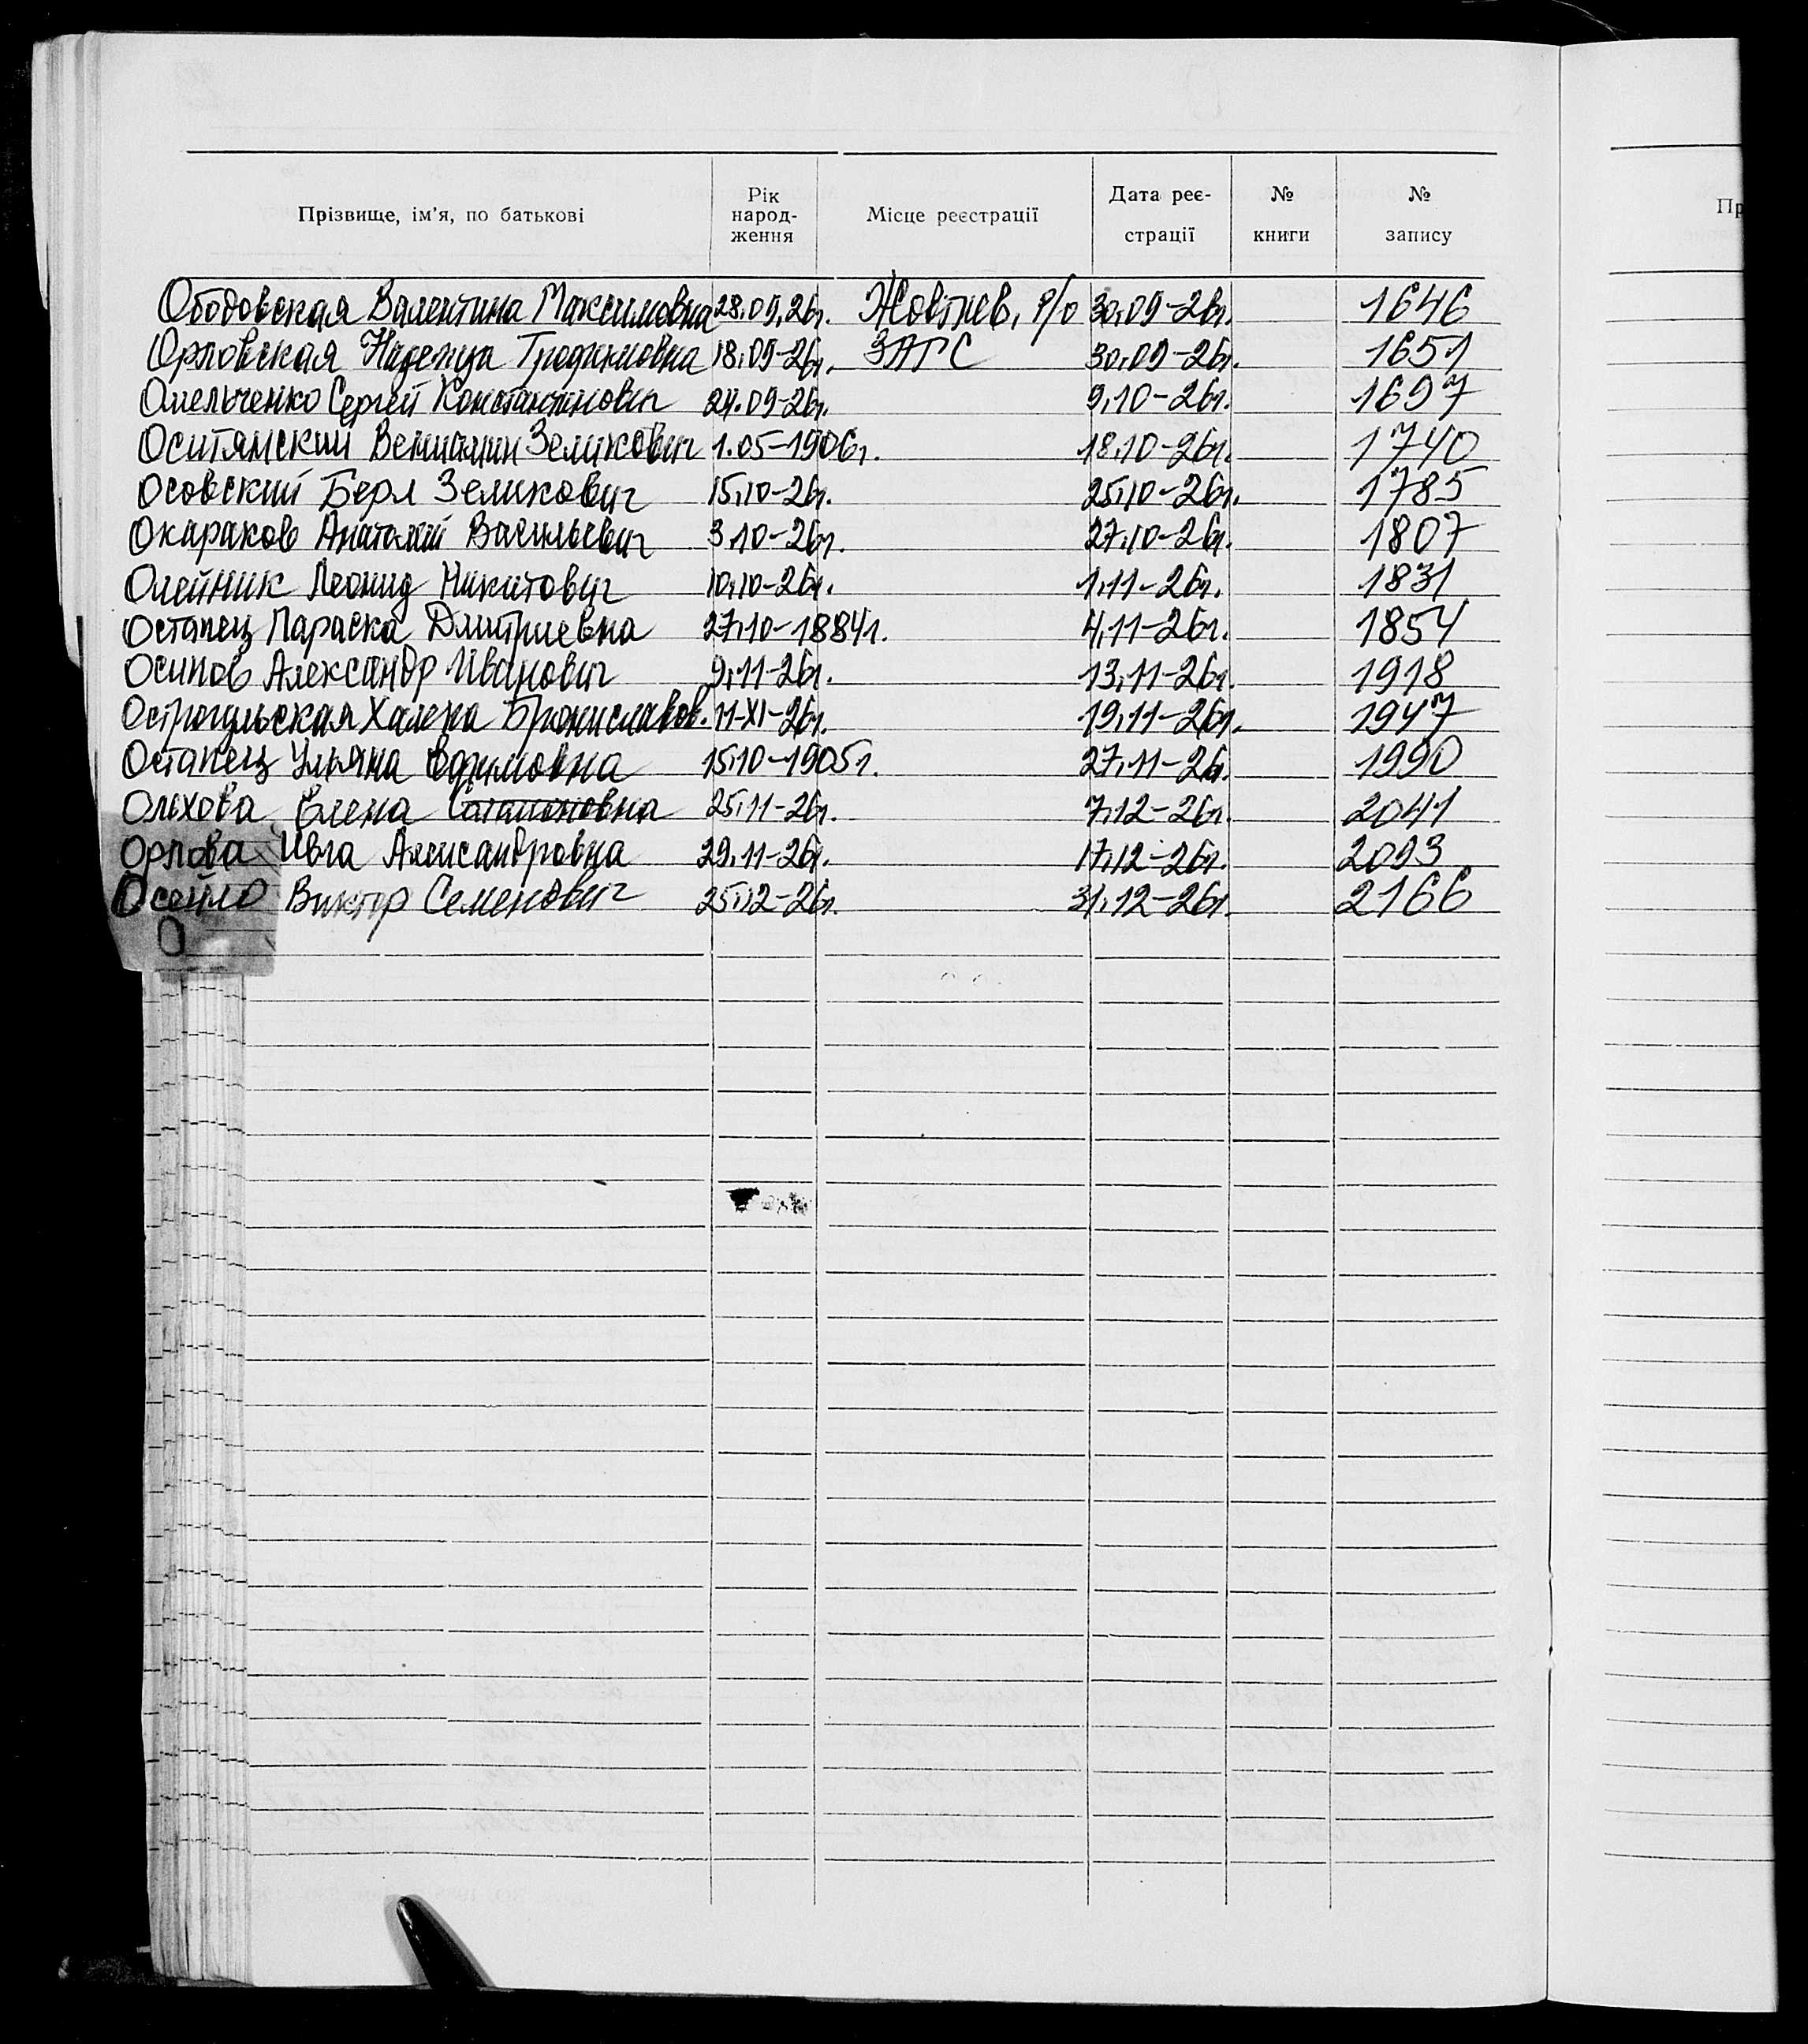 Прізвище, ім'я, по батькові Рік народ- ження Місце реєстрації Дата реє- страції № книги № запису
Ободовская Валентина Максимовна 28.09.26г. Жовтнев. р/о 30.09-26г. 1646
Орловская Надежда Трофимовна 18.09-26г. ЗАГС 30.09-26г. 1651
Омельченко Сергей Константинович 24.09-26г. 9.10-26г. 1697
Оситянский Вениамин Зеликович 1.05-1906г. 18.10-26г. 1740
Осовский Берл Зеликович 15.10-26г. 25.10-26г. 1785
Окараков Анатолий Васильевич 3.10-26г. 27.10-26г. 1807
Олейник Леонид Никитович 10.10-26г. 1.11-26г. 1831
Остапец Параска Дмитриевна 27.10-1884г. 4.11-26г. 1854
Осипов Александр Иванович 9.11-26г. 13.11-26г. 1918
Халена Брониславов. 11-XI-26г. 19.11-26г. 1947
Остапец Ульяна Ефимовна 15.10-1905г. 27.11-26г. 1990
Ольхова Елена 25.11-26г. 7.12-26г. 2041
Орлова Ивга Александровна 29.11-26г. 17.12-26г. 2093
Виктор Семенович 25.12-26г. 31.12-26г. 2166
О
Пр